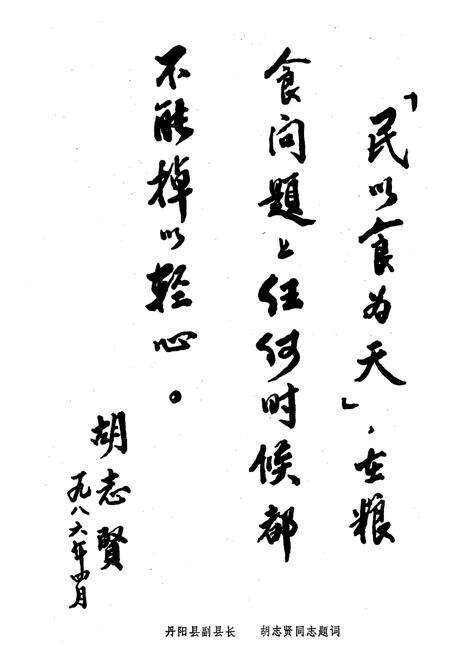 「民以食为天」，在粮
食问题上任何时候都
不能掉以轻心。
胡志賢
一九八六年四月
丹阳县副县长 胡志贤同志题词